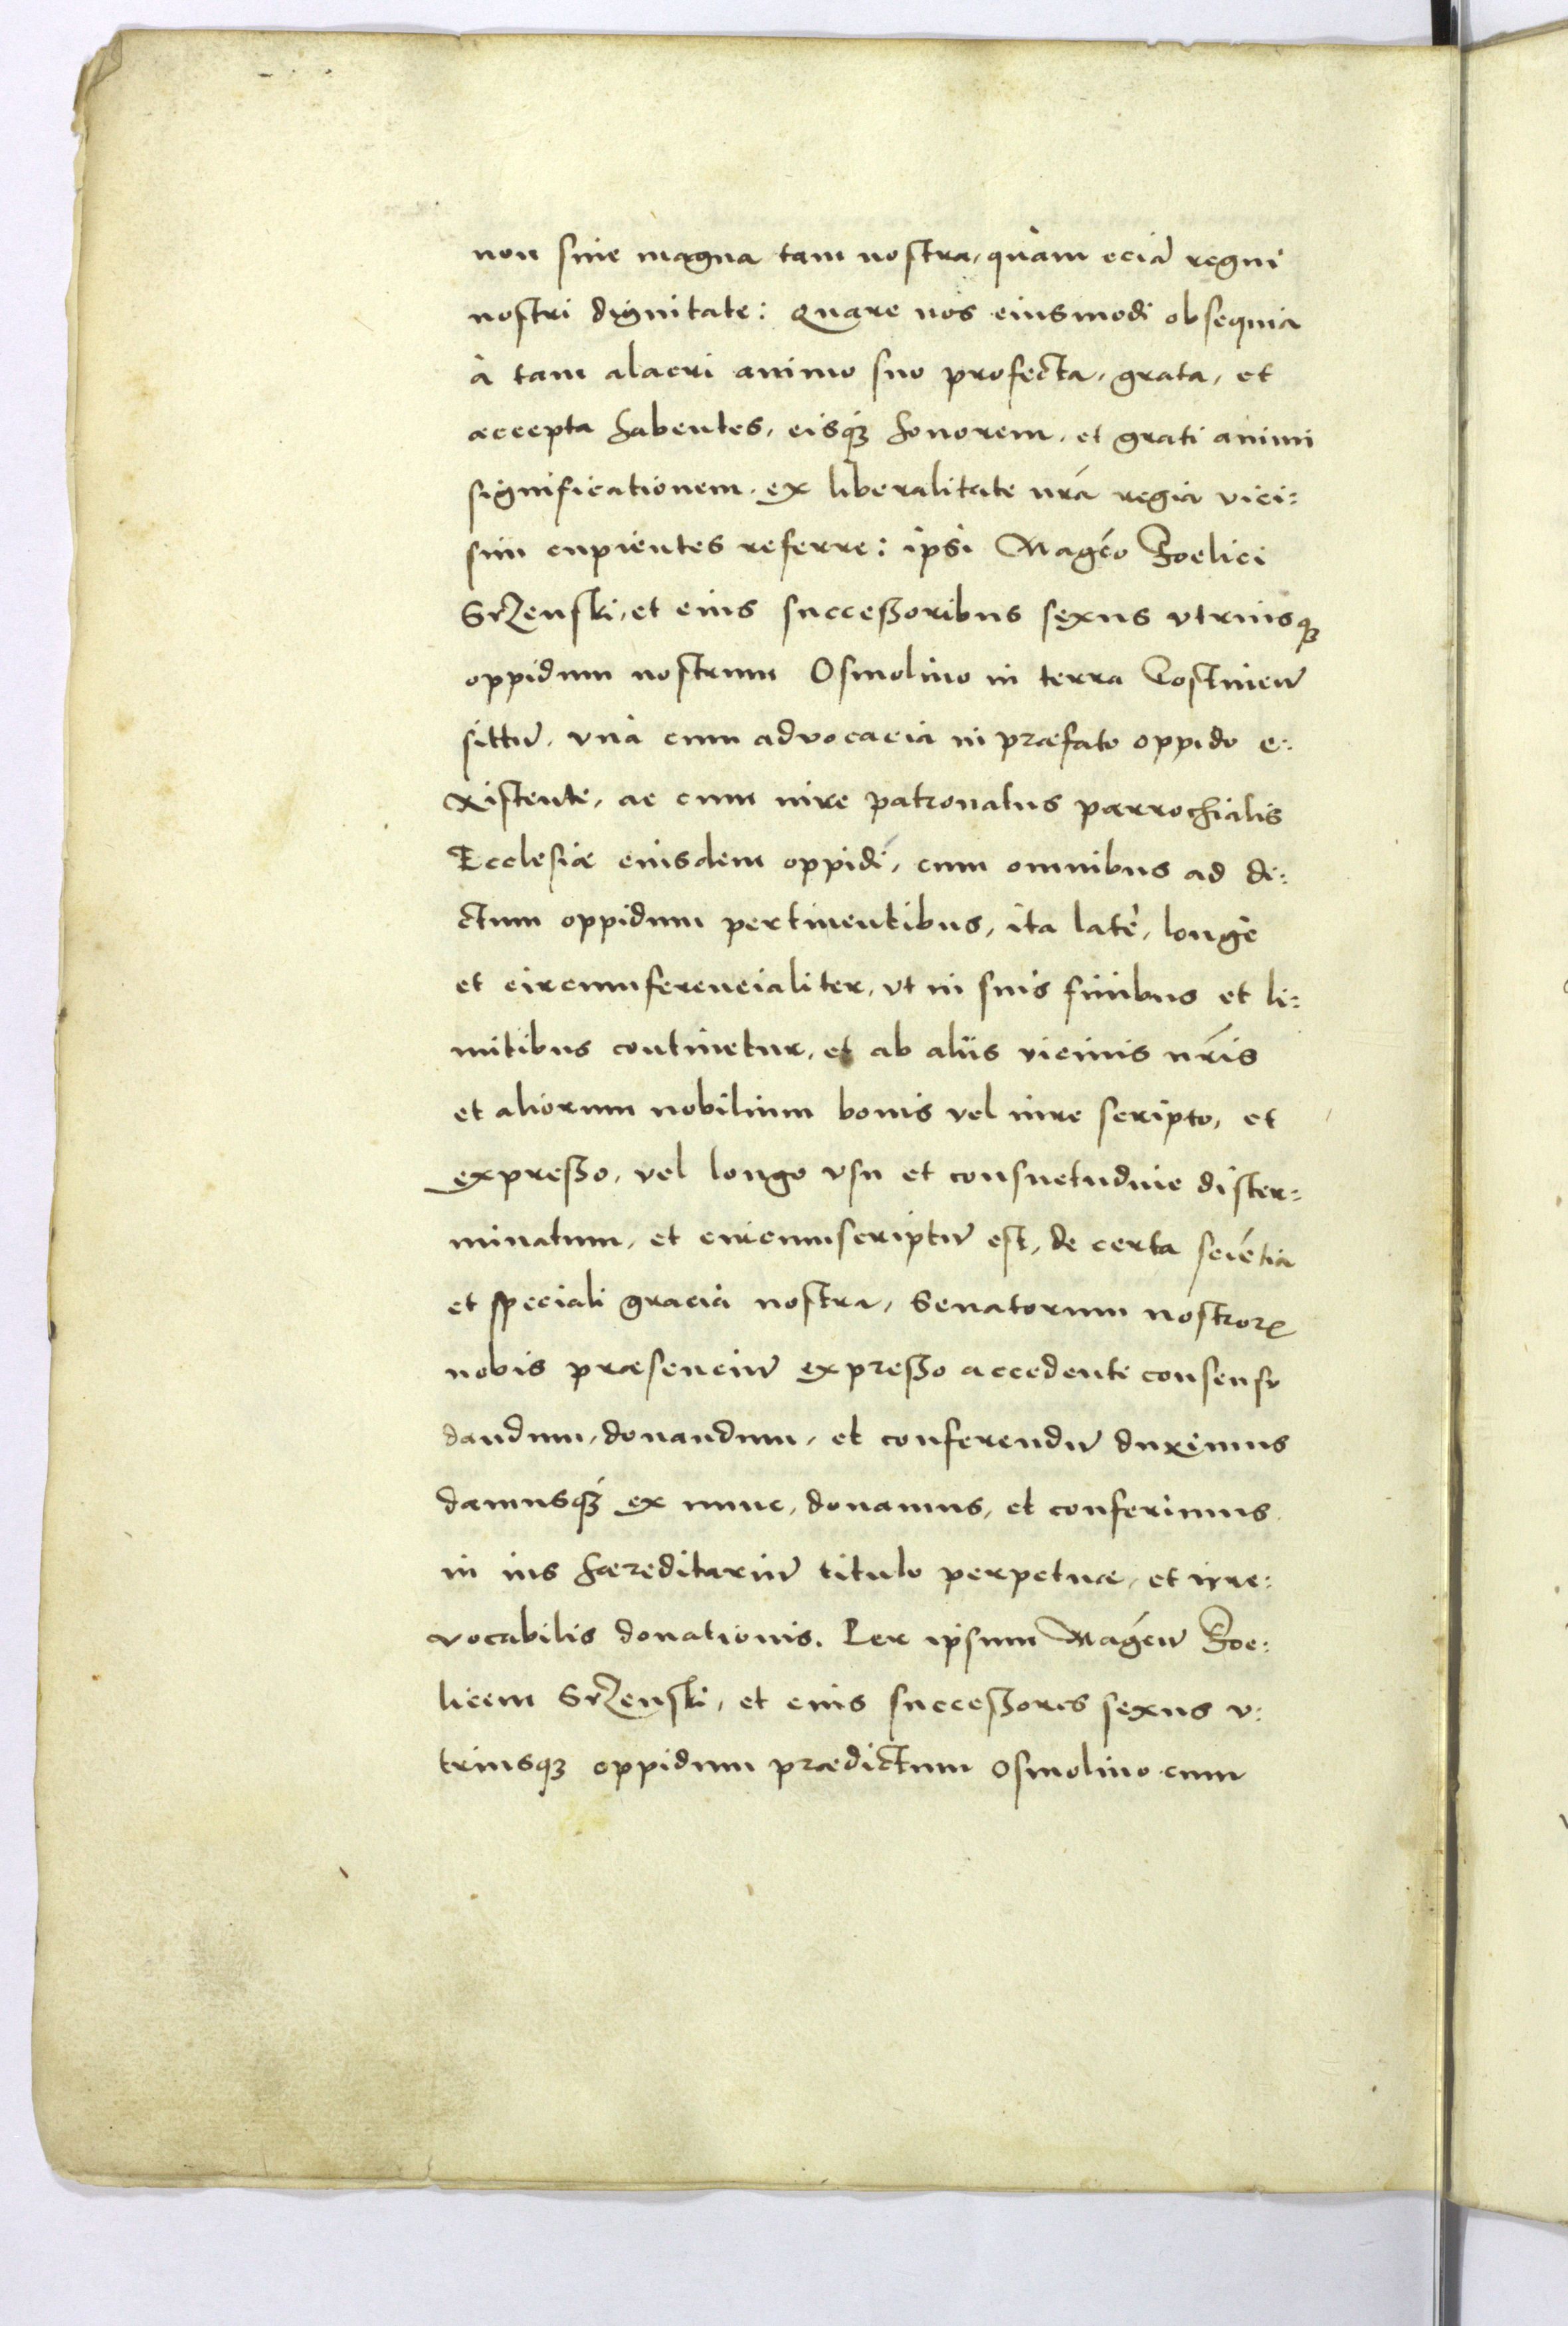 non sine magna tam nostra, quàm eciā regni
nostri dignitate: Quare nos eiusmodi obsequia
à tam alacri animo suo profecta, grata, et
accepta habentes, eisq́ue honorem, et grati animi
significationem, ex liberalitate nr̃a regia vici:
sim cupientes referre: ipsi Magco Foelici
Srzenski, et eius successoribus sexus vtriusq;
oppidum nostrum Osmolino in terra Gostinen̄
sittū, vnà cum advocacia in præfato oppido e:
xistente, ac cum iure patronatus parrochialis
Ecclesiæ eiusdem oppidi, cum omnibus ad di:
ctum oppidum pertinentibus, ita latè, longè
et circumferencialiter, vt in suis finibus et li:
mitibus continetur, et ab alijs vicinis nr̃is
et aliorum nobilium bonis vel iure scripto, et
expresso, vel longo vsu et consuetudine dister:
minatum, et circumscriptū est, de certa sciētia
et speciali gracia nostra, Senatorum nostror̨
nobis præsenciū expresso accedente consensu
dandum, donandum, et conferendū duximus
damusq́ue ex nunc, donamus, et conferimus
in ius hæreditariū titulo perpetuæ, et irre:
vocabilis donationis. Per ipsum Magcū Foe:
licem Srzenski, et eius successores sexus v:
triusq; oppidum prædictum Osmolino cum